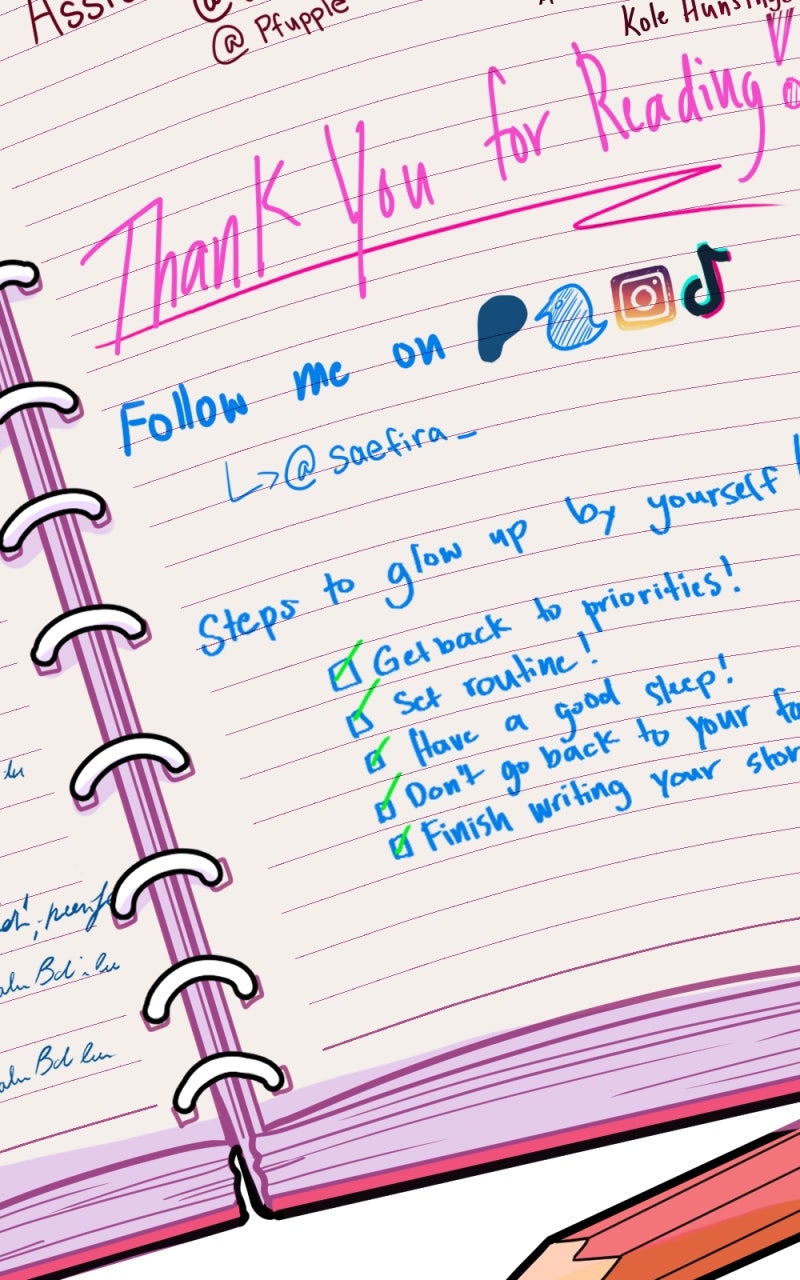 @ Pfupple
Kole
Thank You for Reading
Follow me on
@saefira_
Steps to glow up by yourself
Get back to priorities!
Set routine!
Have a good sleep!
Don't go back to your
Finish writing your